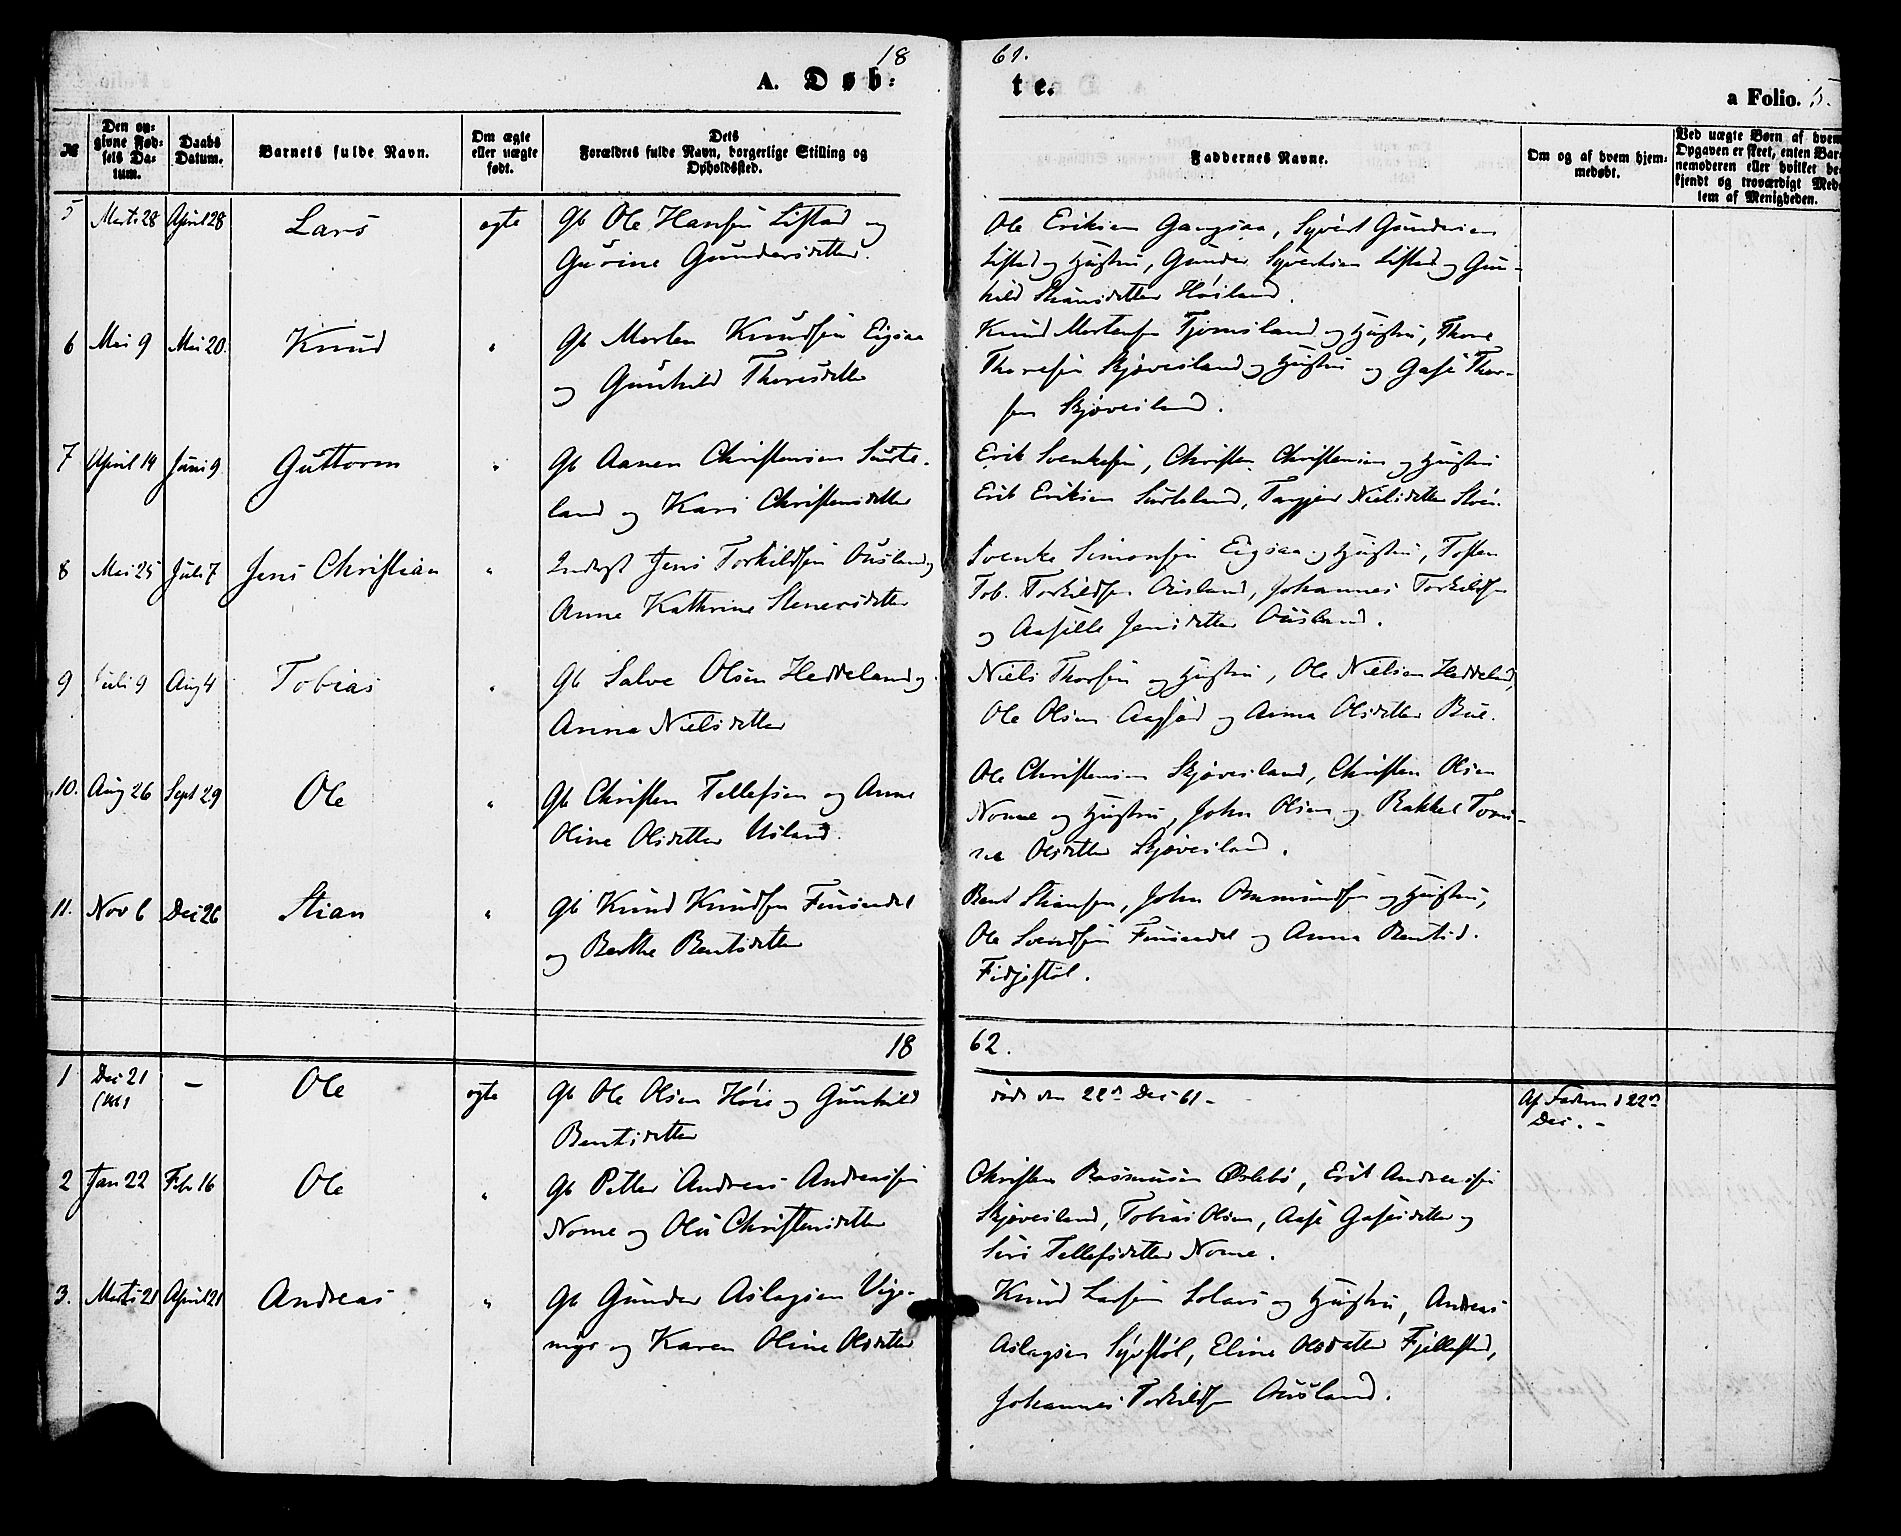 18 61.
A. Døb: te. a Folio. 5.
№ Den opgivne Fødsels Datum. Daabs Datum. Barnets fulde Navn. Om ægte eller uægte født. Dets Forældres fulde Navn, borgerlige Stilling og Opholdssted. Faddernes Navne. Om og af hvem hjemmedøbt. Ved uægte Børn af hvem Opgaven er skeet, enten Barnemoderen eller hvilket bekjendt og troværdigt Medlem af Menigheden.
5 Marts 28 April 28 Lars egte Gb Ole Hansen Listad og
Gurine Gundersdatter.
Ole Eriksen Gangsaa, Syvert Gundersen
Listad og Hustru, Gunder Syvertsen Listad og Gun-
hild Stiansdatter Høiland.
6 Mai 9 Mai 20. Knud " Gb Morten Knudsen Eigsaa
og Gunhild Thoresdatter
Knud Mortensen Tjomsland og Hustru, Thore
Thoresen Skjævesland og Hustru og Gase Thor-
sen Skjævesland.
7 April 14 Juni 9 Guttorm " Gb Aanen Christensen Surte-
land og Kari Christensdatter
Erik Svenkesen, Christen Christensen og Hustru
Erik Eriksen Surteland, Targjer Nielsdatter
8 Mai 25 Juli 7 Jens Christian " Inderst Jens Torkildsen Ausland og
Anne Kathrine Stenersdatter
Svenke Simonsen Eigsaa og Hustru, Tosten
Tob. Torkildsen Ausland, Johannes Torkildsen
og Aasille Jensdatter Ausland.
9 Juli 9 Aug 4 Tobias " Gb Salve Olsen Heddeland og
Anna Nielsdatter
Niels Thorsen og Hustru, Ole Nielsen Heddeland,
Ole Olsen og Anna Olsdatter Bue.
10. Aug 26 Sept 29 Ole " Gb Christen Tellefsen og Anne
Oline Olsdatter Usland.
Ole Christensen Skjævesland, Christen Olsen
Nome og Hustru, John Olsen og Rakkel Tomi-
ne Olsdatter Skjævesland.
11. Nov 6 Dec 26 Stian " Gb Knud Knudsen Finsådal
og Berthe Bentsdatter
Bent Stiansen, John Osmundsen og Hustru,
Ole Svendsen og Anna Bentsd.
Fidjestøl.
18 62.
1 Dec 21 (61) – Ole egte Gb Ole Olsen Høie og Gunhild
Bentsdatter
død den 22de Dec 61 -
Af Faderen d 22de
Dec. -
2 Jan 22 Feb 16 Ole " Gb Petter Andreas Andreassen
Nome og Christensdatter
Christen Rasmusen Øslebø, Erik Andreassen
Skjævesland, Tobias Olsen, Aase Gasesdatter og
Siri Tellefsdatter Nome.
3. Marts 21 April 21 Andreas " Gb Gunder Aslagsen Vige-
myr og Karen Oline Olsdatter
Knud Larsen Solaas og Hustru, Andreas
Aslagsen Syvstøl, Eline Olsdatter Fjellestad,
Johannes Torkildsen Ausland.